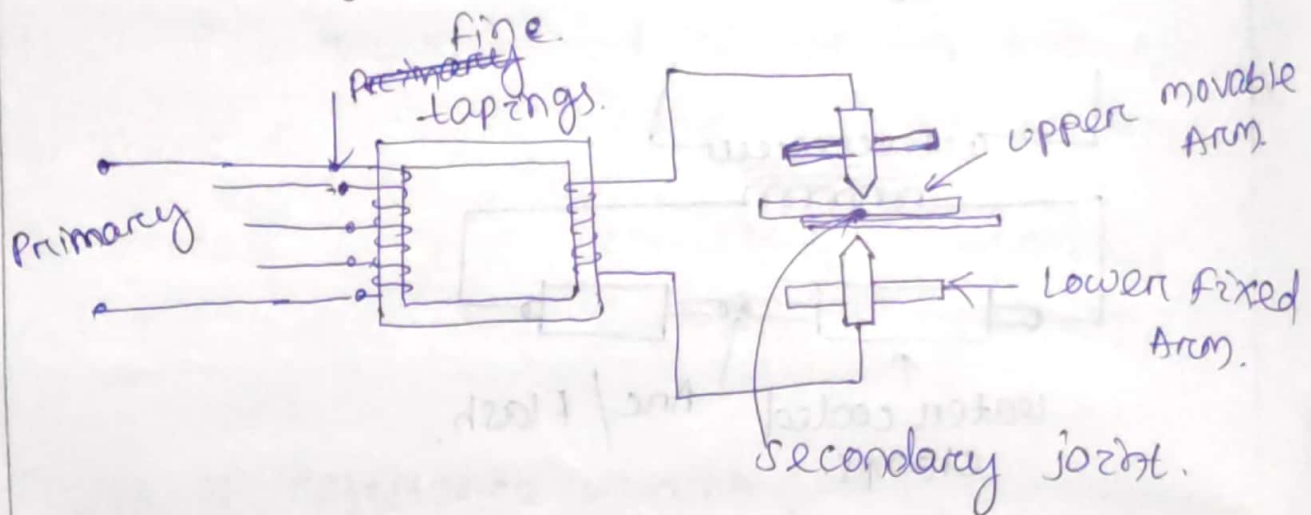 fine.
Primary
tapings.
Primary
upper movable
Arm.
Lower fixed
Arm.
secondary joint.